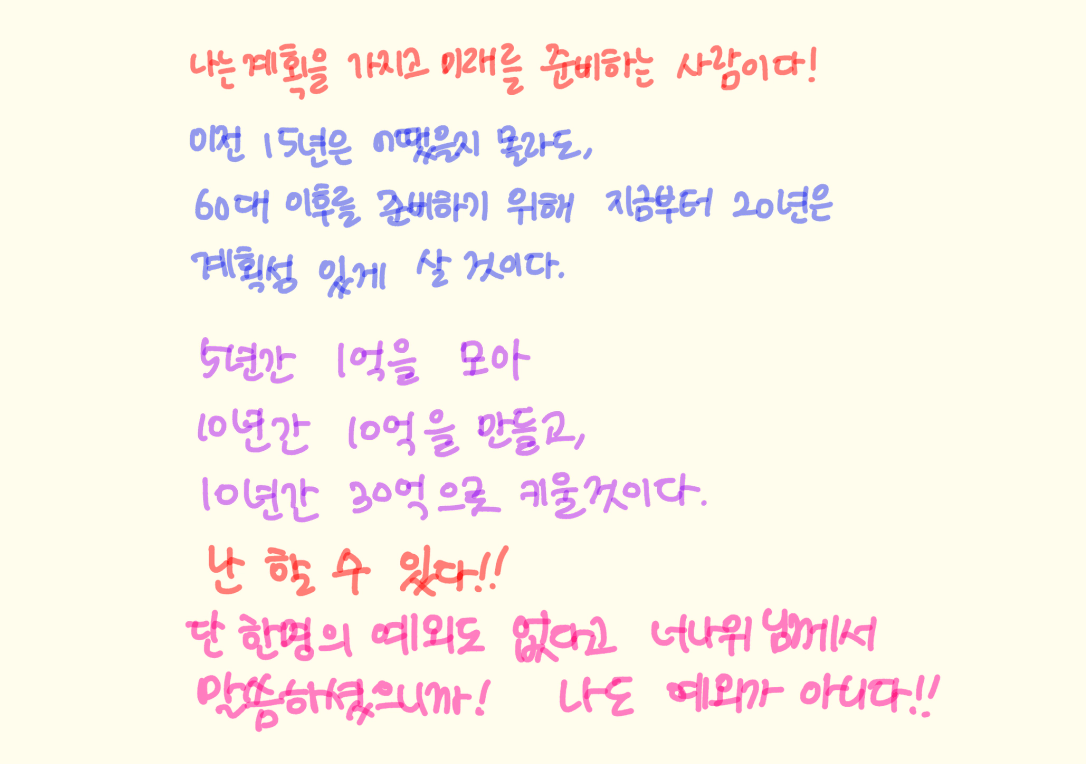 나는 계획을 가지고 미래를 준비하는 사람이다!
이전 15년은 어땠을지 몰라도,
60대 이후를 준비하기 위해 지금부터 20년은
계획성 있게 살 것이다.
5년간 1억을 모아
10년간 10억을 만들고,
10년간 30억으로 키울것이다.
난 할 수 있다!!
단 한명의 예외도 없다고 너나위님께서
말씀하셨으니까! 나도 예외가 아니다!!